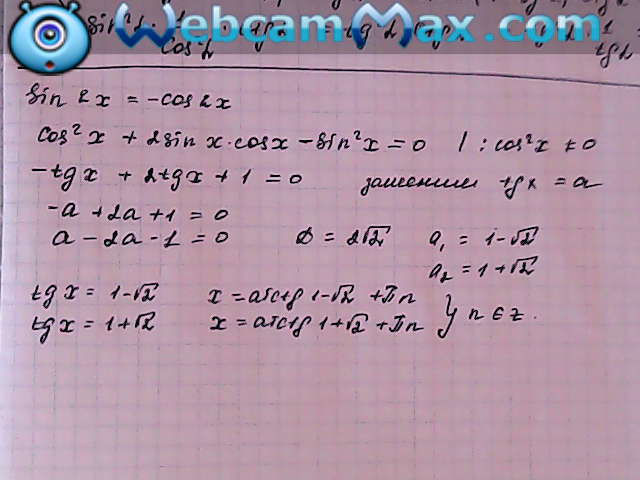 WebcamMax.com
sin 2x = -cos 2x
cos²x + 2sin x·cosx - sin²x = 0 / : cos²x ≠ 0
-tgx + 2tgx + 1 = 0 заменим tgx = a
-a + 2a + 1 = 0
a - 2a - 1 = 0 D = 2√2 a₁ = 1-√2
a₂ = 1+√2
tg x = 1-√2 x = arctg 1-√2 + πn
tg x = 1+√2 x = arctg 1+√2 + πn } n ∈ z.